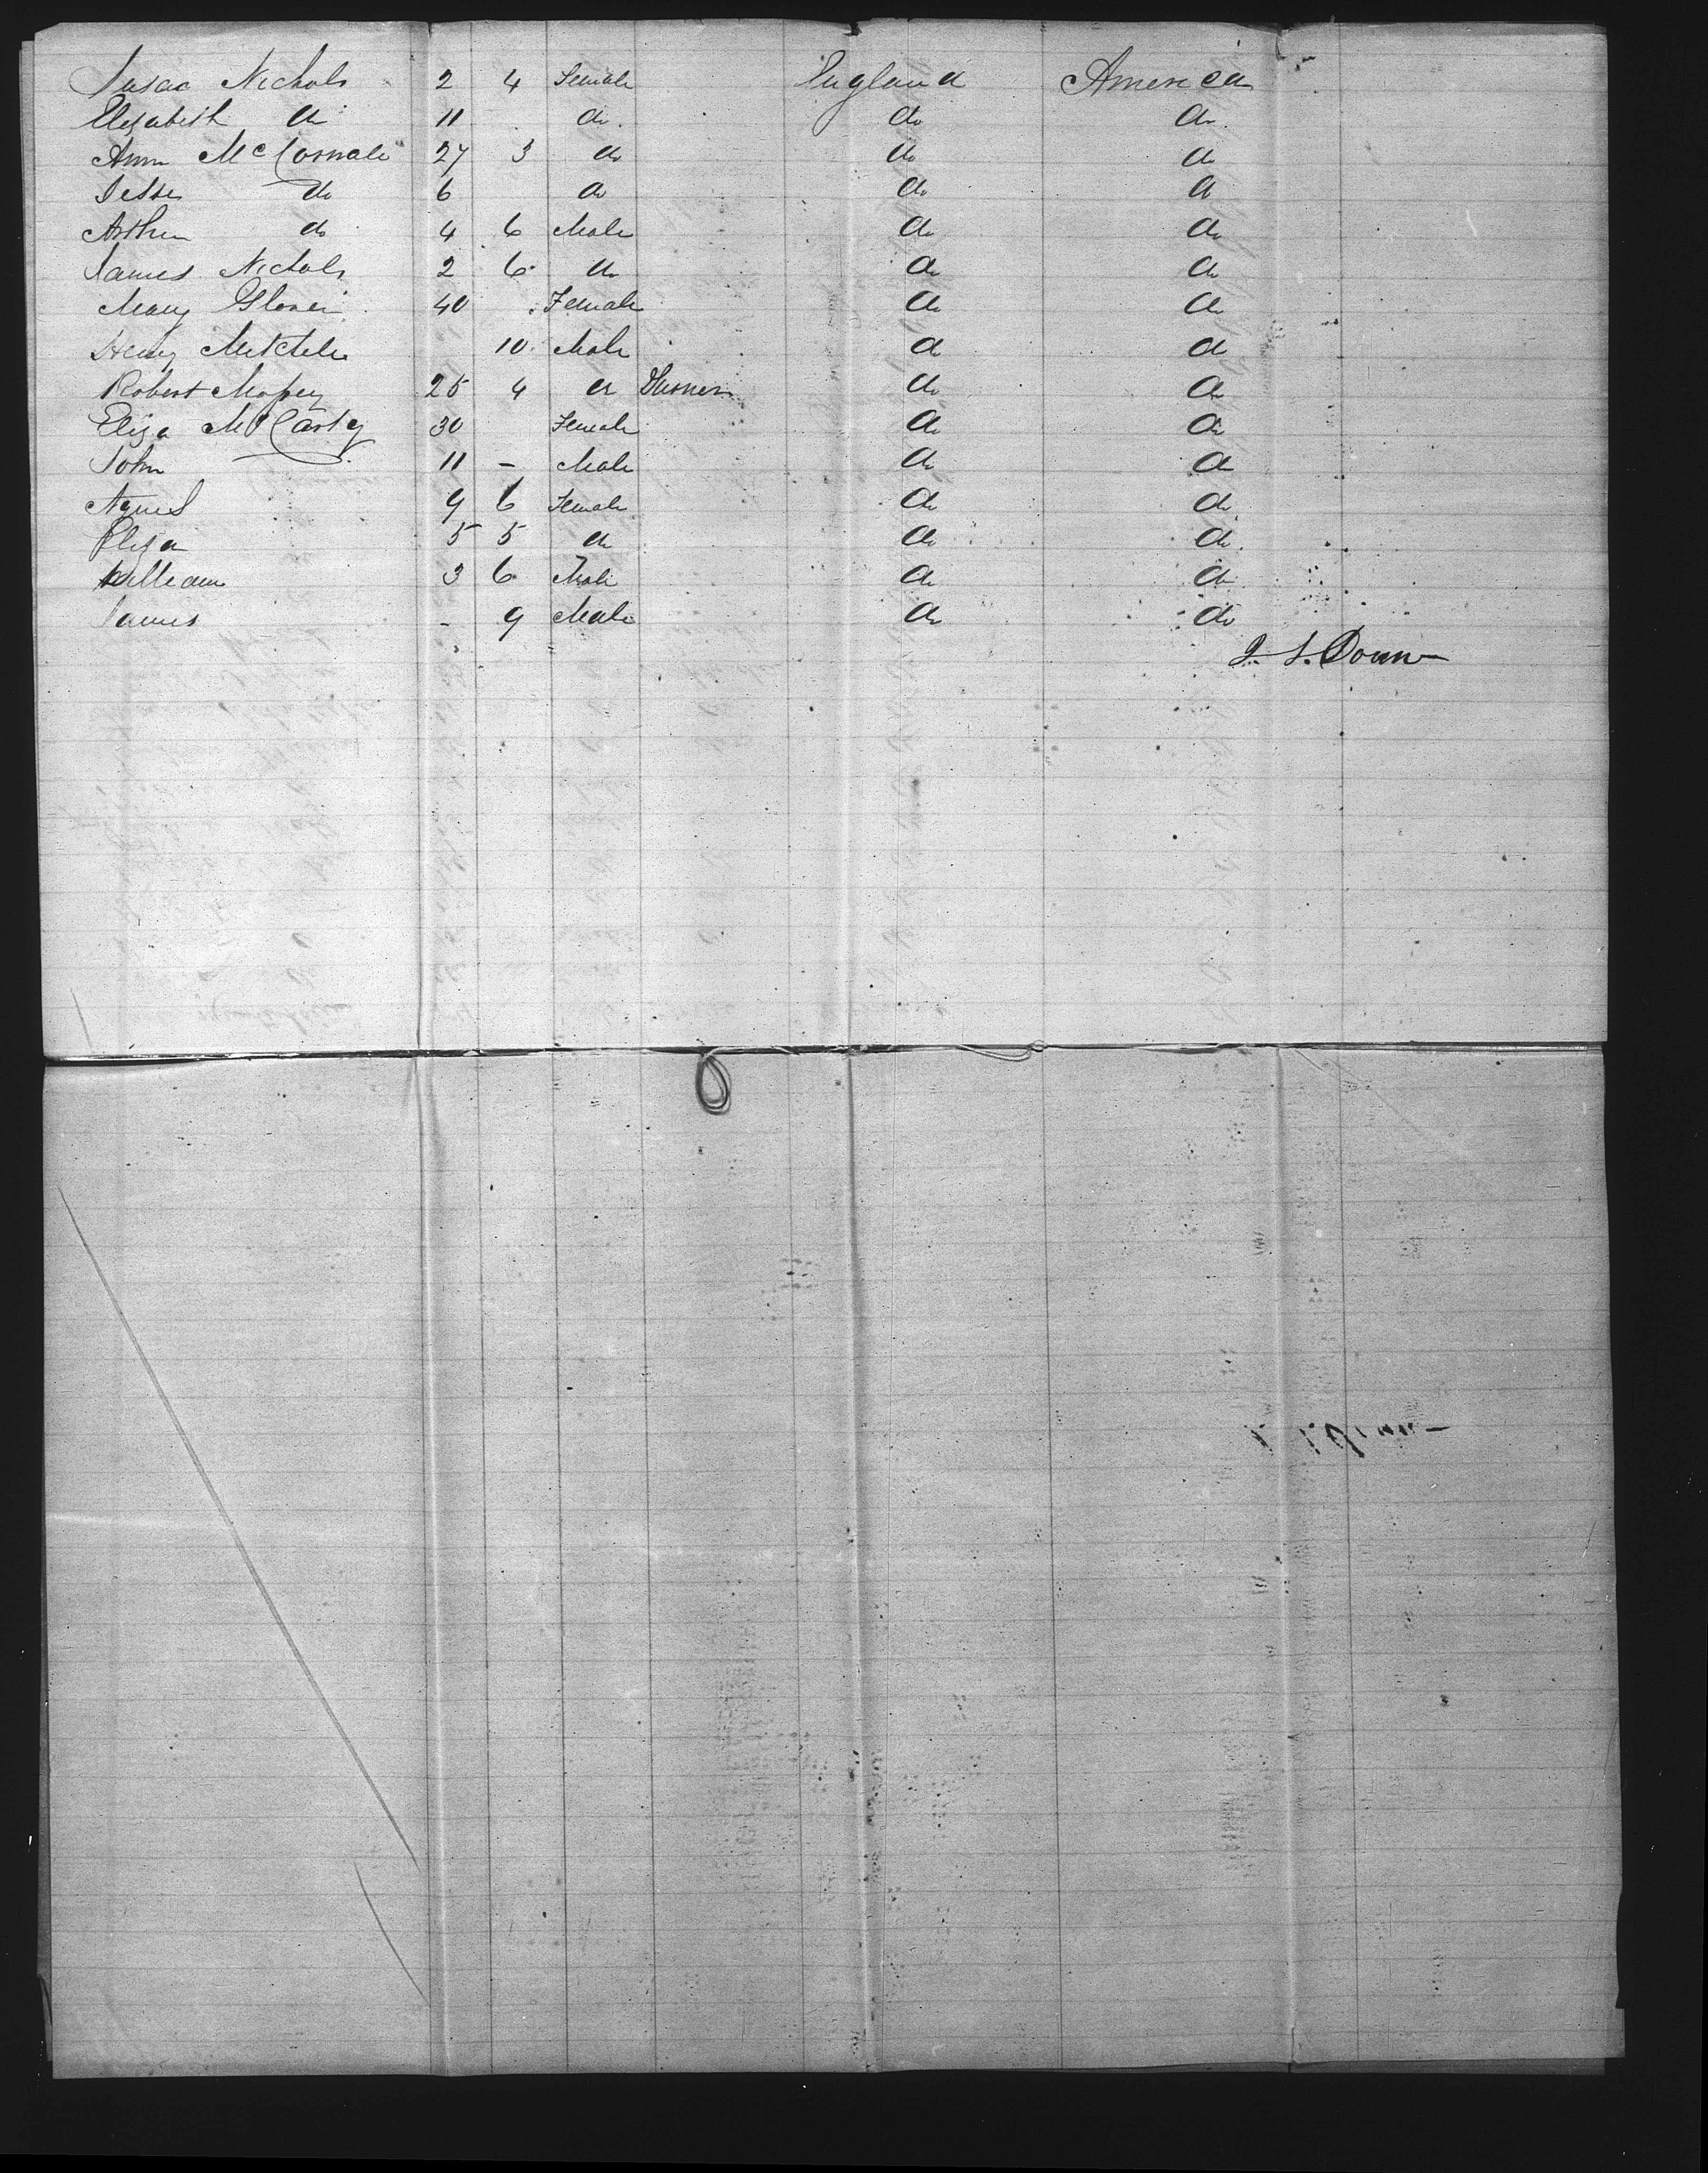 Susaa Nichols 2 4 Female England America
Elizabeth do 11 do. do do.
Ann McCormale 27 3 do do do
Jesse do 6 do do do
Arthur do 4 6 Male do do
James Nichols 2 6 do do do
Mary Glover 40 Female do do
Henry Mitchele 10 Male do do
Robert 25 4 do do do
Eliza McCarty 30 Female do do
John 11 - Male do do
Agnes 9 6 Female do do
Eliza 5 5 do do do
William 3 6 Male do do
James - 9 Male do do